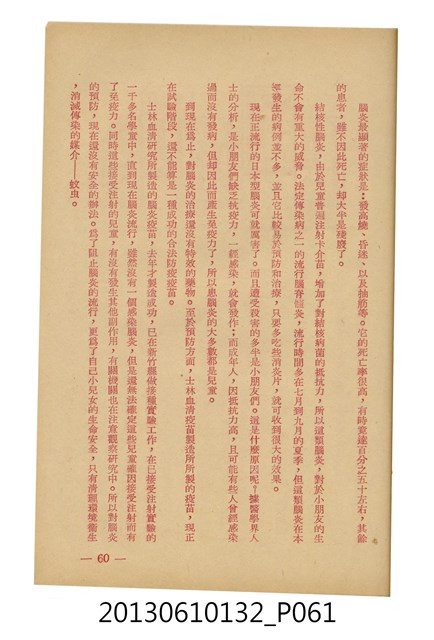 腦炎最顯著的症狀是：發高燒、昏迷、以及抽筋等。它的死亡率很高，有時竟達百分之五十左右，其餘
的患者，雖不因此死亡，却大半是殘廢了。
結核性腦炎，由於兒童普遍注射卡介苗，增加了對結核病菌的抵抗力，所以這類腦炎，對於小朋友的生
命不會有重大的威脅。法定傳染病之一的流行腦脊髓炎，流行時間多在七月到九月的夏季，但這類腦炎在本
發生的病例並不多，並且它比較易於預防和治療，只要多吃些消炎片，就可收到很大的效果。
現在正流行的日本型腦炎可就厲害了。而且遭受殺害的多半是小朋友們。這是什麼原因呢？據醫學界人
士的分析，是小朋友們缺乏抗疫力，一經感染，就會發作；而成年人，因抵抗力高，且可能有些人曾經感染
過而沒有發病，但却因此而產生免疫力了，所以患腦炎的大多數都是兒童。
到現在爲止，對腦炎的治療還沒有特效的藥物。至於預防方面，士林血清疫苗製造所所製的疫苗，現正
在試驗階段，還不能算是一種成功的合法防疫疫苗。
士林血清研究所製造的腦炎疫苗，去年才製造成功，已在新竹縣做接種實驗工作，在已接受注射實驗的
一千多名學童中，直到現在腦炎流行，雖然沒有一個感染腦炎，但是還無法確定這些兒童確因接受注射而有
了免疫力。同時這些接受注射的兒童，有沒有發生其他副作用，有關機構也在注意觀察研究中。所以對腦炎
的預防，現在還沒有安全的辦法。爲了阻止腦炎的流行，更爲了自己小兒女的生命安全，只有清理環境衞生
，消滅傳染的媒介——蚊虫。
— 60 —
20130610132_P061